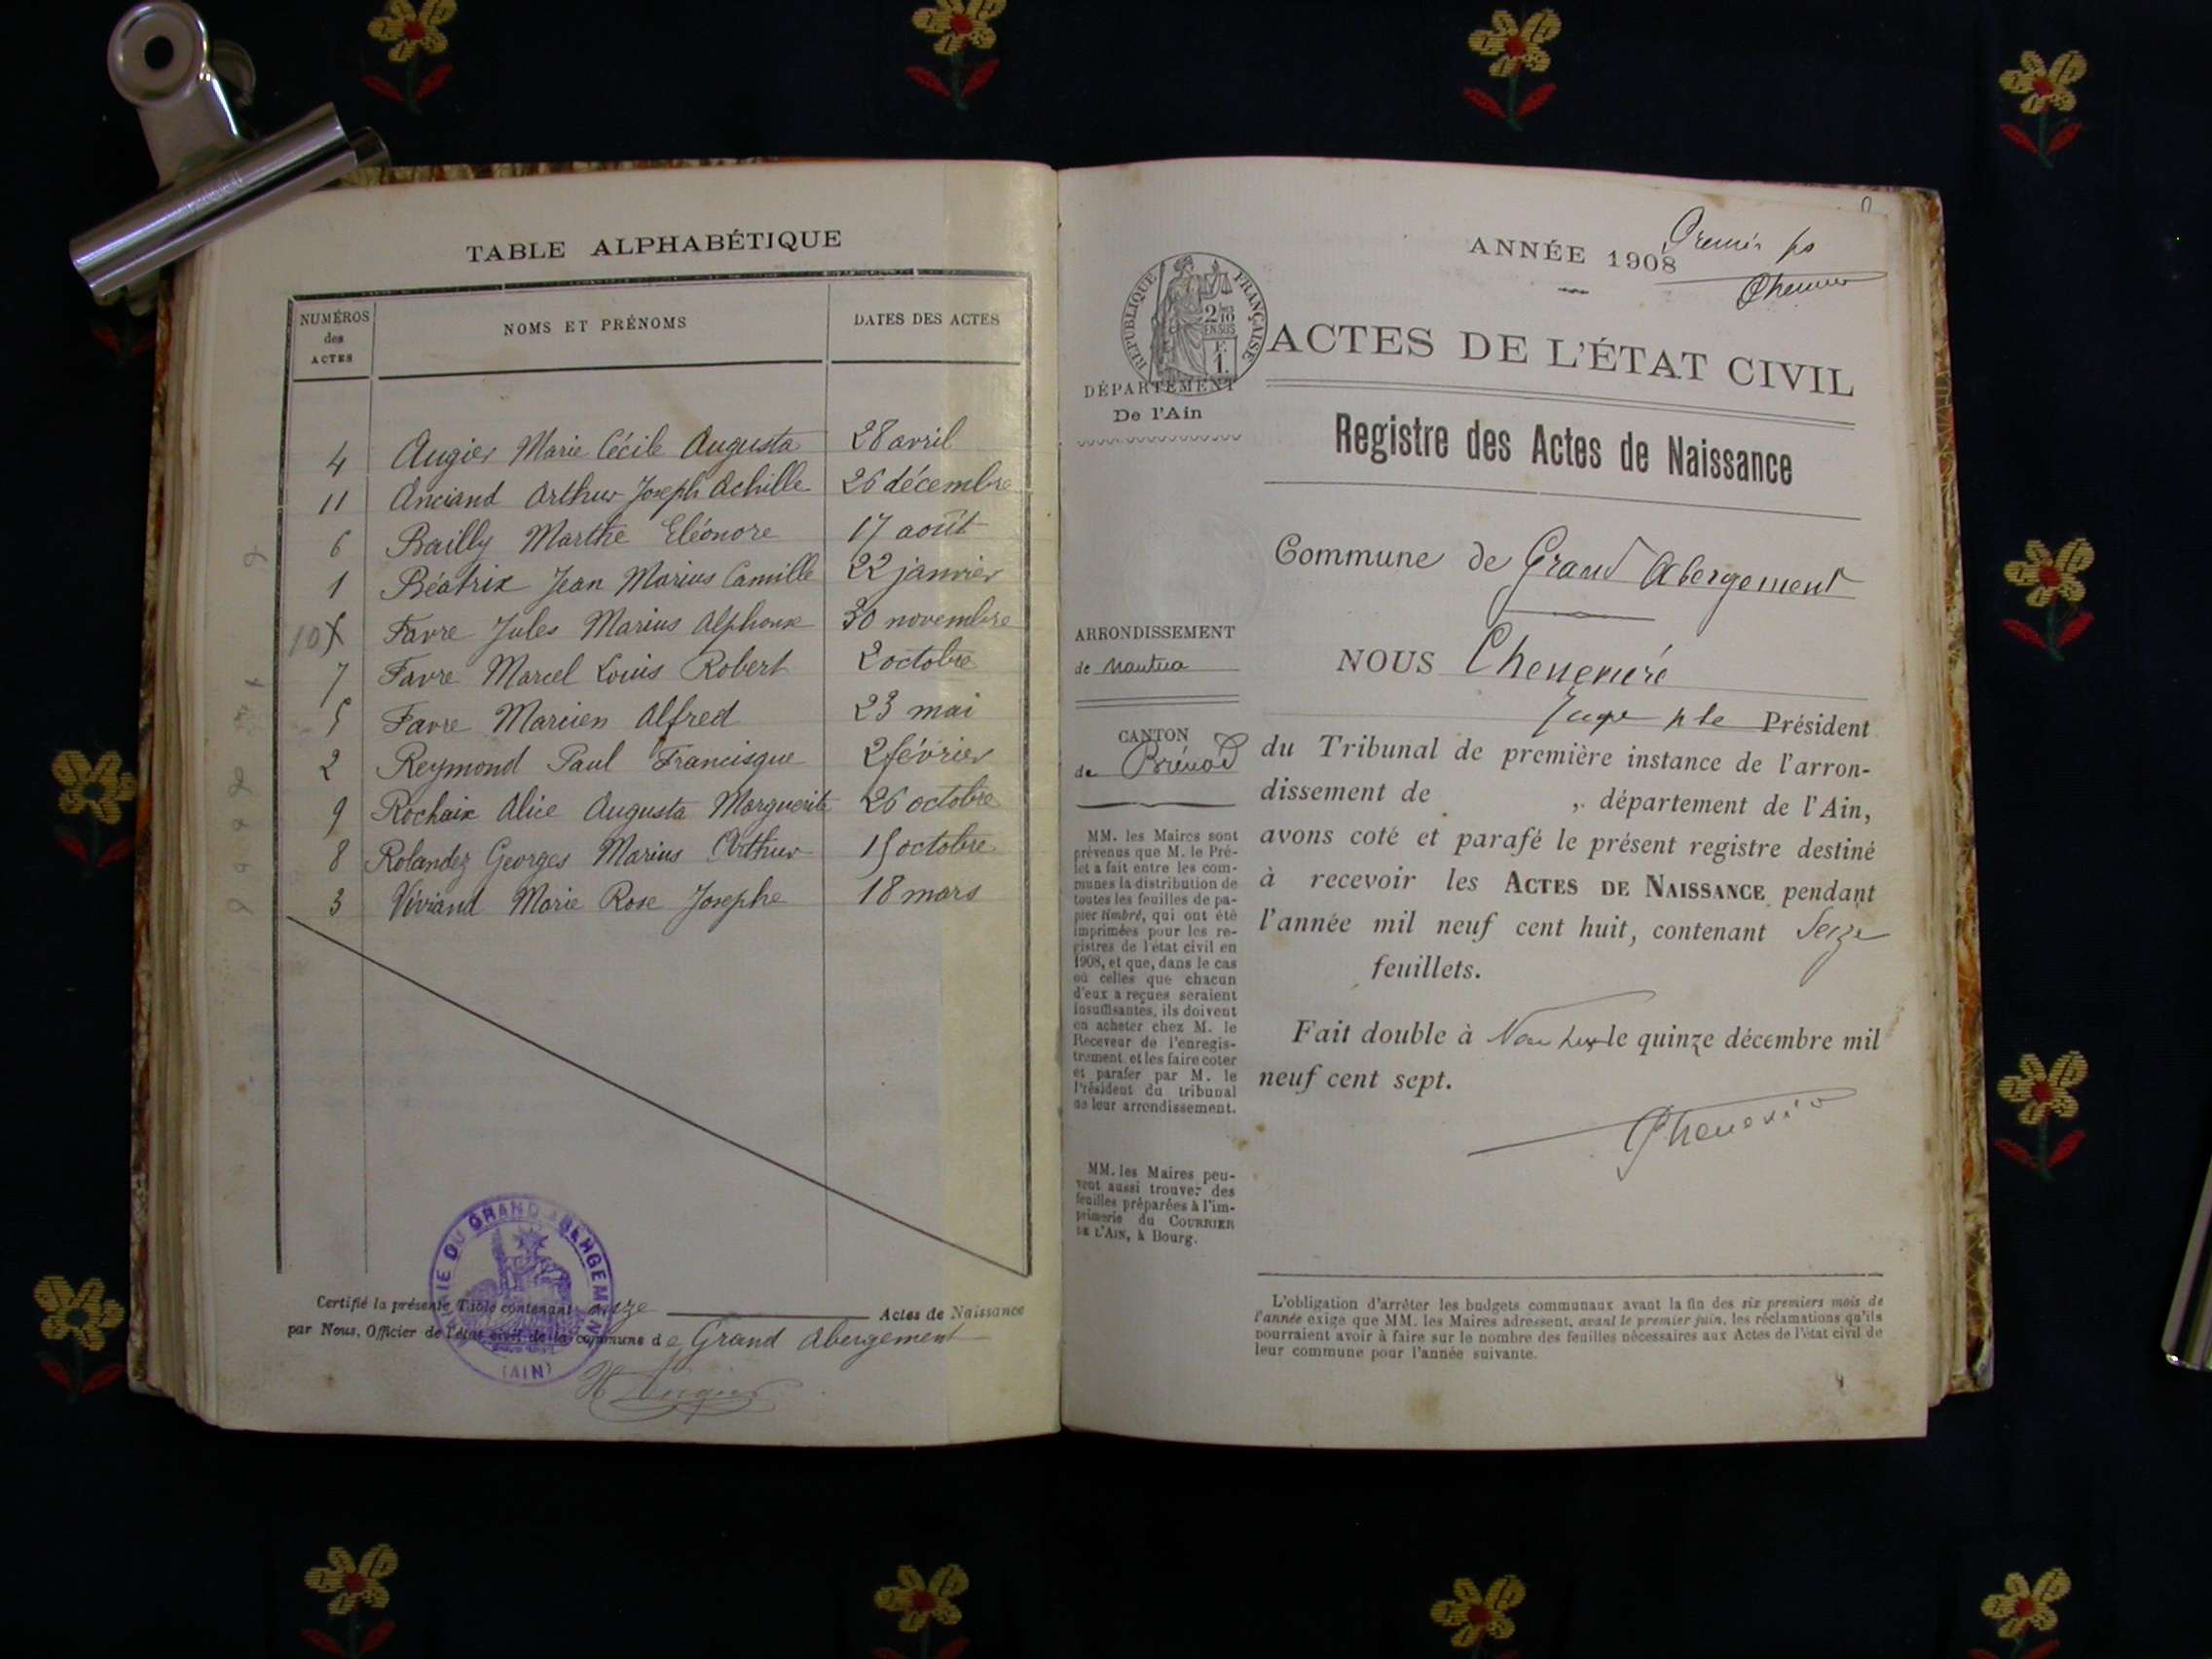 TABLE ALPHABÉTIQUE
NUMÉROS
des
ACTES
NOMS ET PRÉNOMS
DATES DES ACTES
4 Augier Marie Cécile Augusta 28 avril
11 Anciand Arthur Joseph Achille 26 décembre
6 Bailly Marthe Eléonore 17 août
1 Béatrix Jean Marius Camille 22 janvier
10 Favre Jules Marius Alphonse 30 novembre
7 Favre Marcel Louis Robert 2 octobre
5 Favre Marien Alfred 23 mai
2 Reymond Paul Francisque 2 février
9 Rochaix Alice Augusta Marguerite 26 octobre
8 Rolandez Georges Marius Arthur 15 octobre
3 Viviand Marie Rose Josephe 18 mars
Certifié la présente Table contenant onze Actes de Naissance
par Nous, Officier de l'état civil de la commune de Grand Abergement
MAIRIE DU GRAND ABERGEMENT
(AIN)
Premier
ANNÉE 1908
RÉPUBLIQUE FRANÇAISE
2/10 EN SUS
F. 1.
ACTES DE L'ÉTAT CIVIL
DÉPARTEMENT
De l'Ain
Registre des Actes de Naissance
Commune de Grand Abergement
ARRONDISSEMENT
de Nantua
CANTON
de Brénod
MM. les Maires sont
prévenus que M. le Pré-
fet a fait entre les com-
munes la distribution de
toutes les feuilles de pa-
pier timbré, qui ont été
imprimées pour les re-
gistres de l'état civil en
1908, et que, dans le cas
où celles que chacun
d'eux a reçues seraient
insuffisantes, ils doivent
en acheter chez M. le
Receveur de l'enregis-
trement et les faire coter
et parafer par M. le
Président du tribunal
de leur arrondissement.
MM. les Maires peu-
vent aussi trouver des
feuilles préparées à l'im-
primerie du COURRIER
DE L'AIN, à Bourg.
NOUS
Juge Président
du Tribunal de première instance de l'arron-
dissement de , département de l'Ain,
avons coté et parafé le présent registre destiné
à recevoir les ACTES DE NAISSANCE pendant
l'année mil neuf cent huit, contenant Seize
feuillets.
Fait double à Nantua le quinze décembre mil
neuf cent sept.
L'obligation d'arrêter les budgets communaux avant la fin des six premiers mois de
l'année exige que MM. les Maires adressent, avant le premier juin, les réclamations qu'ils
pourraient avoir à faire sur le nombre des feuilles nécessaires aux Actes de l'état civil de
leur commune pour l'année suivante.